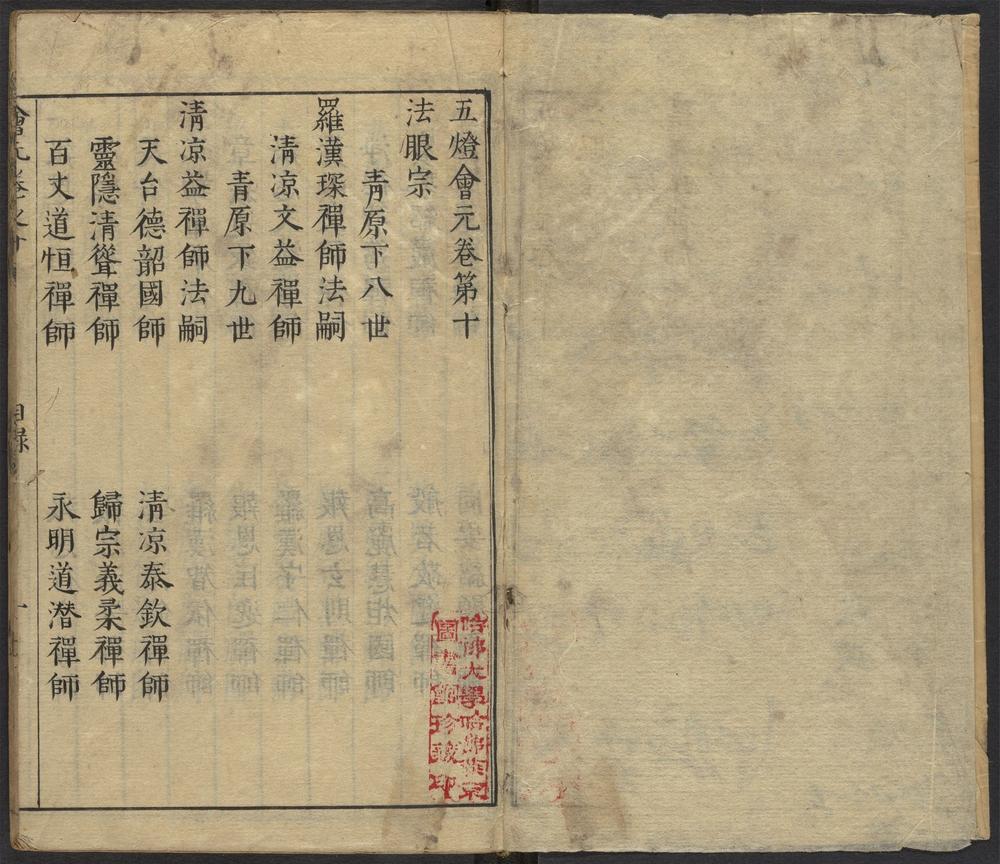 五燈會元卷第十
法眼宗
青原下八世
羅漢琛禪師法嗣
清凉文益禪師
青原下九世
清凉益禪師法嗣
天台德韶國師　清凉泰欽禪師
靈隱清聳禪師　歸宗義柔禪師
百丈道恒禪師　永明道潜禪師
會元卷之十　目録　一
哈佛大學哈佛燕京
圖書館珍藏印